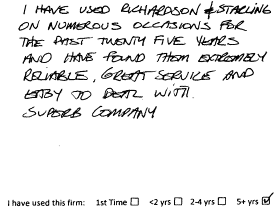 I HAVE USED RICHARDSON & STARLING
ON NUMEROUS OCCASIONS FOR
THE PAST TWENTY FIVE YEARS
AND HAVE FOUND THEM EXTREMELY
RELIABLE, GREAT SERVICE AND
EASY TO DEAL WITH.
SUPERB COMPANY
I have used this firm: 1st Time ☐ <2 yrs ☐ 2-4 yrs ☐ 5+ yrs ☑